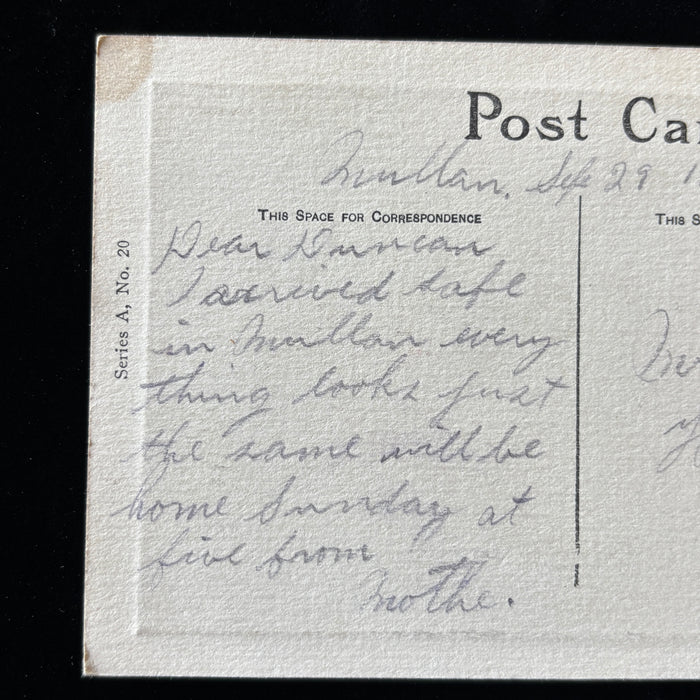 Post Ca
Mullan, Sept 29 1
THIS SPACE FOR CORRESPONDENCE
THIS S
Series A, No. 20
Dear Duncan
I arrived safe
in Mullan every
thing looks just
the same will be
home Sunday at
five from
Mothe.